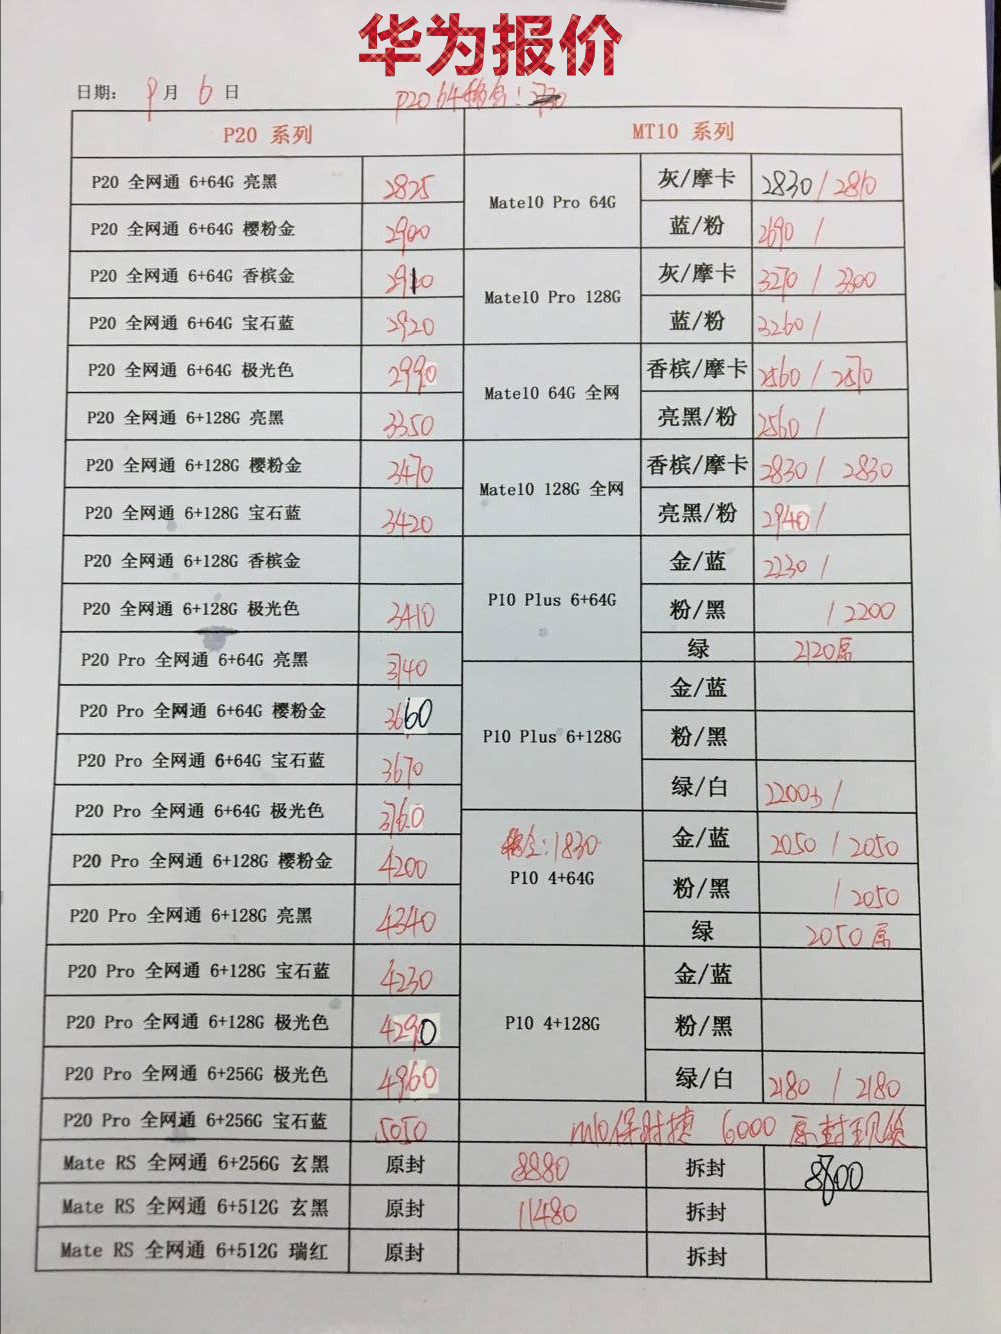 华为报价
日期: 9月 6日
P20 64
P20 系列 MT10 系列
P20 全网通 6+64G 亮黑 2825 Mate10 Pro 64G 灰/摩卡 2830 / 2810
P20 全网通 6+64G 樱粉金 2900 蓝/粉 2690 /
P20 全网通 6+64G 香槟金 2910 Mate10 Pro 128G 灰/摩卡 3270 / 3300
P20 全网通 6+64G 宝石蓝 2920 蓝/粉 3260 /
P20 全网通 6+64G 极光色 2990 Mate10 64G 全网 香槟/摩卡 2560 / 2570
P20 全网通 6+128G 亮黑 3350 亮黑/粉 2560 /
P20 全网通 6+128G 樱粉金 3470 Mate10 128G 全网 香槟/摩卡 2830 / 2830
P20 全网通 6+128G 宝石蓝 3420 亮黑/粉 2940 /
P20 全网通 6+128G 香槟金 P10 Plus 6+64G 金/蓝 2230 /
P20 全网通 6+128G 极光色 3410 粉/黑 / 2200
绿 2120
P20 Pro 全网通 6+64G 亮黑 3740 P10 Plus 6+128G 金/蓝
P20 Pro 全网通 6+64G 樱粉金 3660 粉/黑
P20 Pro 全网通 6+64G 宝石蓝 3670 绿/白 2200 /
P20 Pro 全网通 6+64G 极光色 3760 :1830 金/蓝 2050 / 2050
P20 Pro 全网通 6+128G 樱粉金 4200 P10 4+64G 粉/黑 / 2050
P20 Pro 全网通 6+128G 亮黑 4340 绿 2050
P20 Pro 全网通 6+128G 宝石蓝 4230 P10 4+128G 金/蓝
P20 Pro 全网通 6+128G 极光色 4290 粉/黑
P20 Pro 全网通 6+256G 极光色 4960 绿/白 2180 / 2180
P20 Pro 全网通 6+256G 宝石蓝 5050 m10保时捷 6000 原封现货
Mate RS 全网通 6+256G 玄黑 原封 8880 拆封 8700
Mate RS 全网通 6+512G 玄黑 原封 11480 拆封
Mate RS 全网通 6+512G 瑞红 原封 拆封